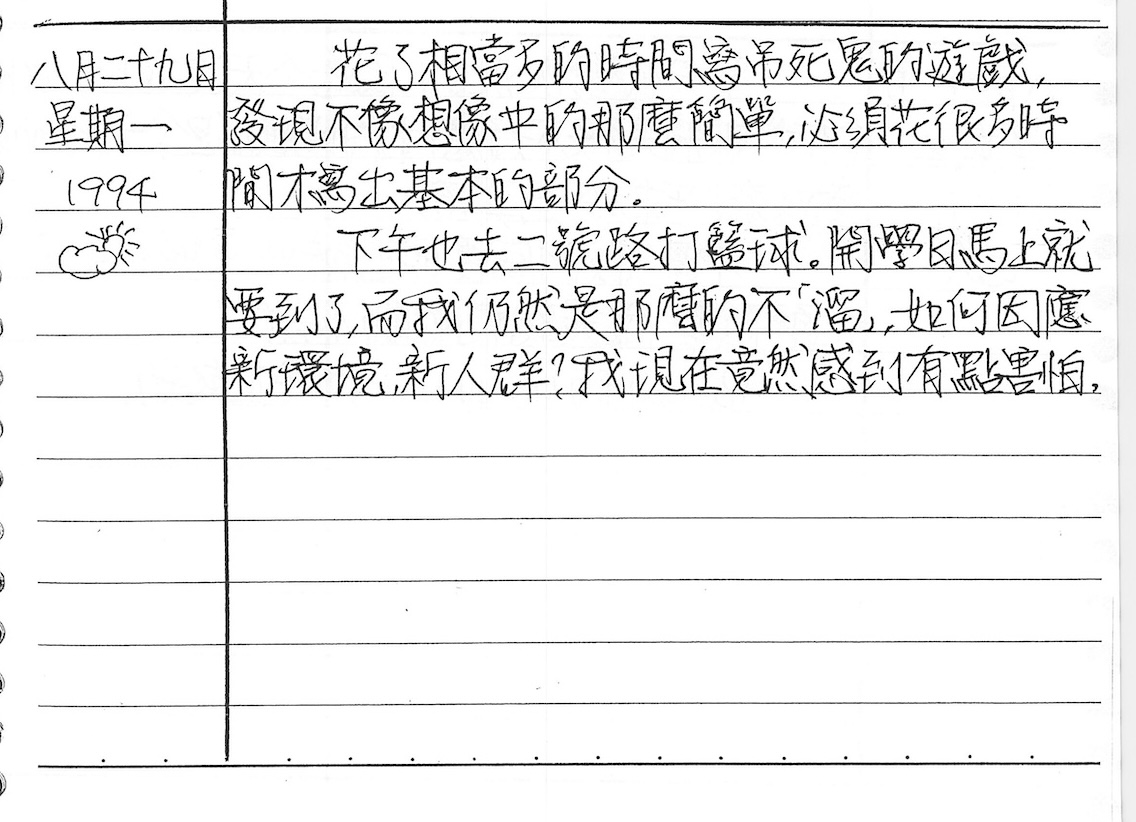 八月二十九日
星期一
1994
花了相當多的時間寫吊死鬼的遊戲,
發現不像想像中的那麼簡單,必須花很多時
間才寫出基本的部分。
下午也去二號路打籃球。開學日馬上就
要到了,而我仍然是那麼的不「溜」,如何因應
新環境,新人群?我現在竟然感到有點害怕。